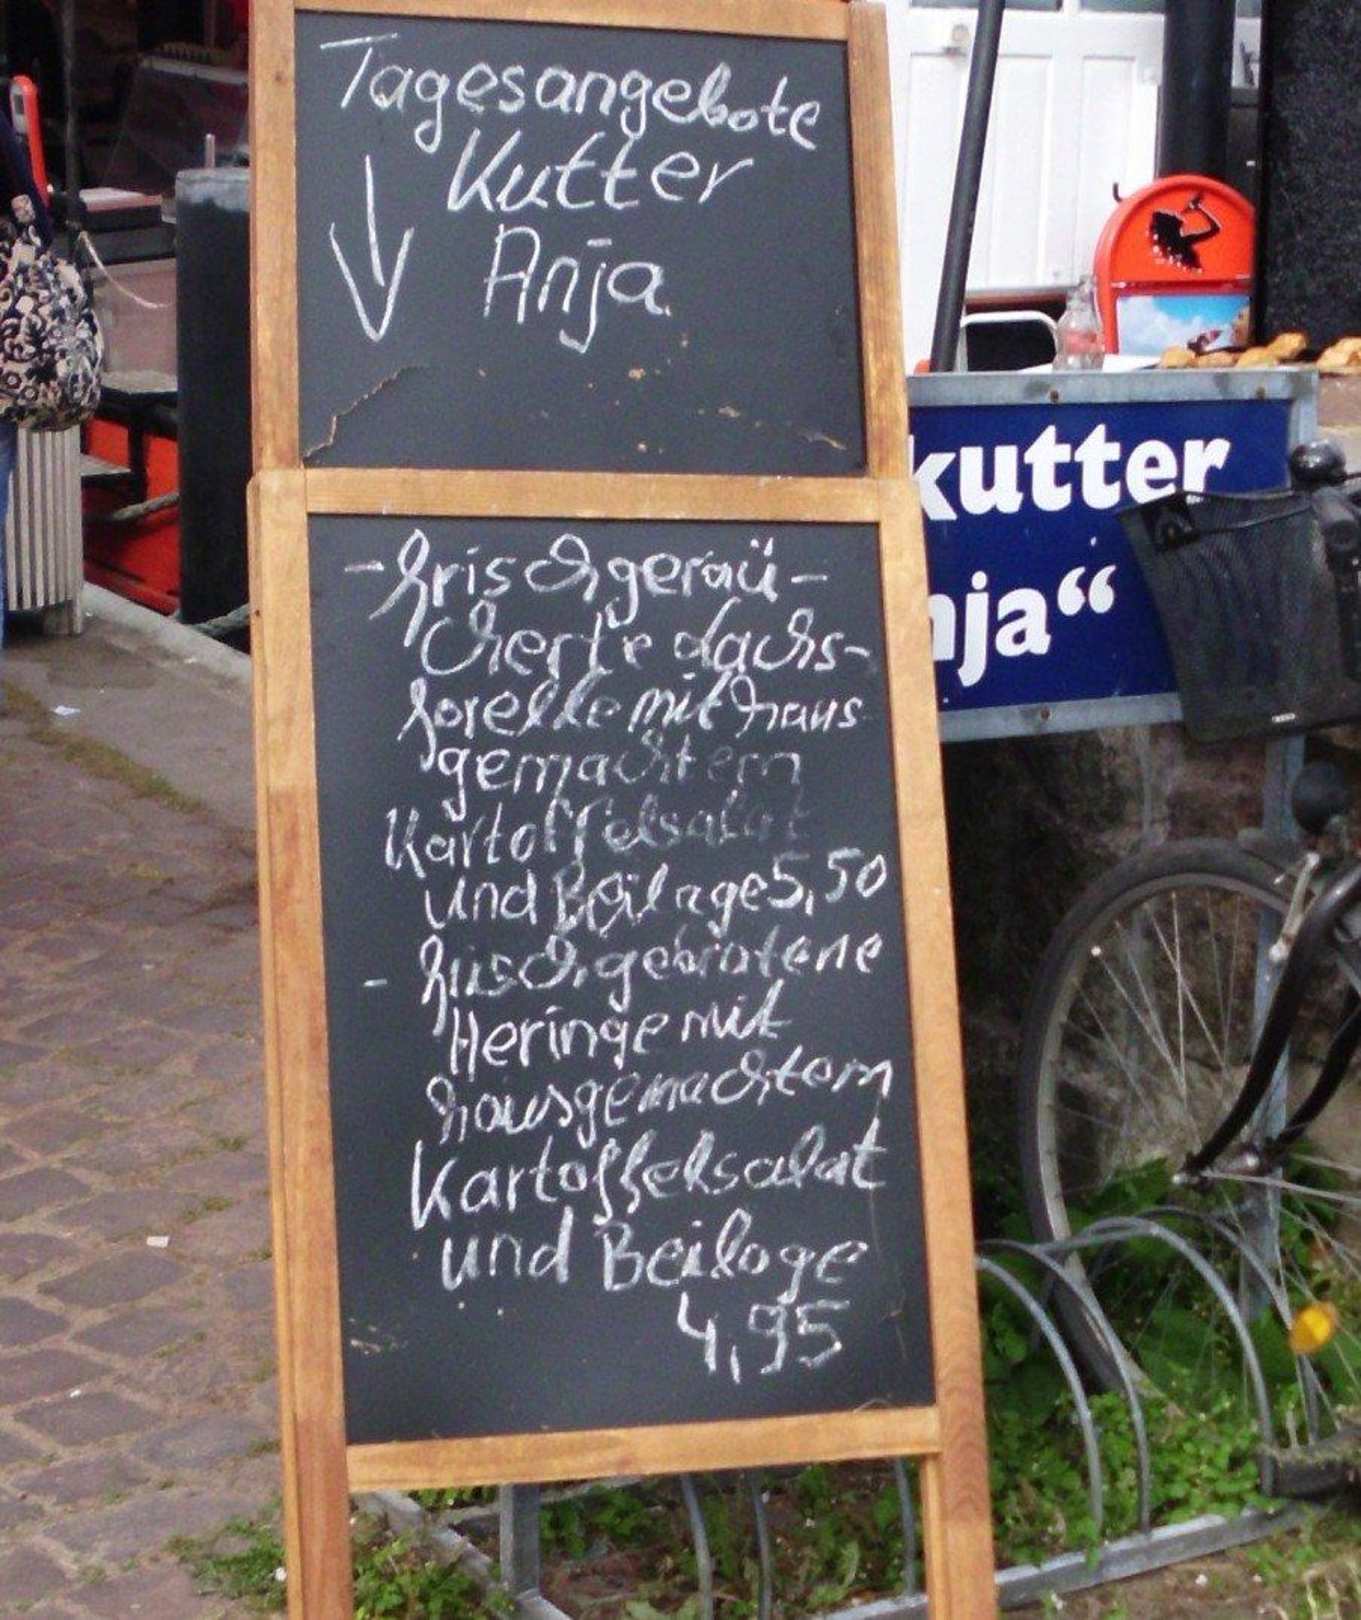 Tagesangebote
Kutter
Anja
- frischgeräu-
cherte Lachs-
forelle mit haus
gemachtem
Kartoffelsalat
und Beilage 5,50
- frischgebratene
Heringe mit
hausgemachtem
Kartoffelsalat
und Beilage
4,95
kutter
nja“